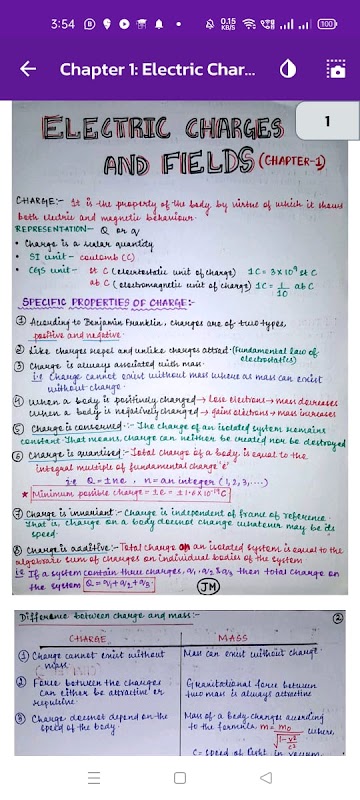 3:54
0.15 KB/S
100
Chapter 1: Electric Char...
1
ELECTRIC CHARGES
AND FIELDS (CHAPTER-1)
CHARGE:- It is the property of the body by virtue of which it shows
both electric and magnetic behaviour.
REPRESENTATION- Q or q
• Charge is a scalar quantity
• SI unit - coulomb (C)
• CGS unit- st C (electrostatic unit of charge) 1C = 3x10⁹ st C
ab C (electromagnetic unit of charge) 1C = 1/10 ab C
SPECIFIC PROPERTIES OF CHARGE:-
① According to Benjamin Franklin, charges are of two types,
positive and negative
② Like charges repel and unlike charges attract. (fundamental law of electrostatics)
③ Charge is always associated with mass.
i.e Charge cannot exist without mass whereas mass can exist
without charge.
④ When a body is positively charged → loses electrons → mass decreases
When a body is negatively charged → gains electrons → mass increases
⑤ Charge is conserved:- The charge of an isolated system remains
constant. That means, charge can neither be created nor be destroyed
⑥ Charge is quantised:- Total charge of a body is equal to the
integral multiple of fundamental charge 'e'
i.e Q = ±ne, n = an integer (1,2,3,....)
* Minimum possible charge = ±e = ±1.6x10⁻¹⁹C
⑦ Charge is invariant:- Charge is independent of frame of reference.
That is, charge on a body does not change whatever may be its
speed.
⑧ Charge is additive:- Total charge on an isolated system is equal to the
algebraic sum of charges on individual bodies of the system
i.e If a system contain three charges, q₁, q₂ & q₃ then total charge on
the system Q = q₁+q₂+q₃.
JM
Difference between charge and mass:-
②
CHARGE
MASS
① Charge cannot exist without
mass
Mass can exist without charge.
② Force between the charges
can either be attractive or
repulsive.
Gravitational force between
two mass is always attractive
③ Charge does not depend on the
speed of the body.
Mass of a body changes according
to the formula m = m₀/√(1-v²/c²) where
C = speed of light in vacuum